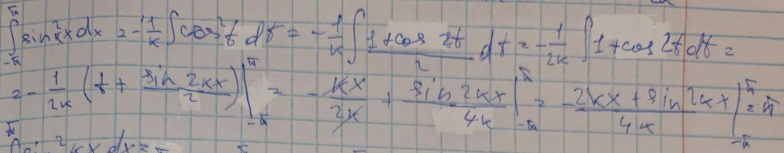 ∫_{-π}^{π} sin²kx dx = -1/k ∫ cos²t dt = -1/k ∫ (1+cos 2t)/2 dt = -1/2k ∫ 1+cos 2t dt =
= -1/2k (t + sin 2kx/2) |_{-π}^{π} = -kx/2k + sin 2kx/4k |_{-π}^{π} = -2kx + sin 2kx/4k |_{-π}^{π} = π